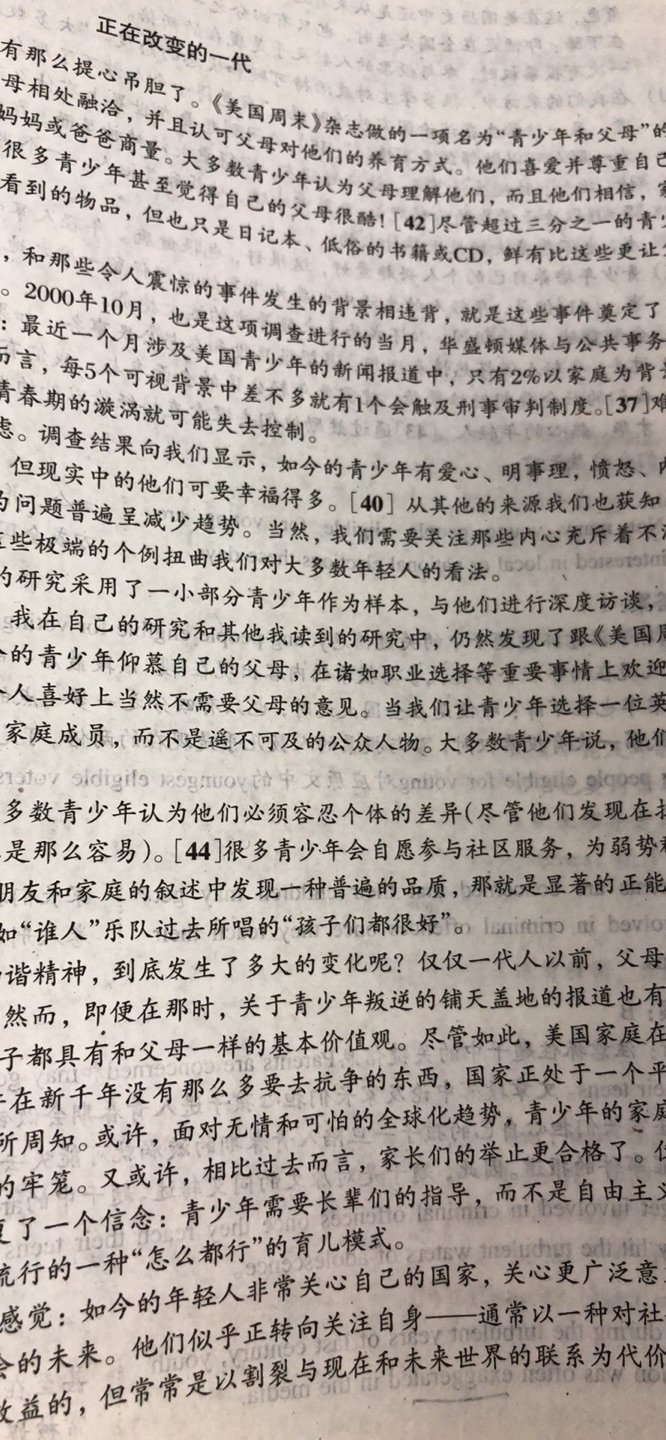 正在改变的一代
有那么提心吊胆了。《美国周末》杂志做的一项名为“青少年和父母”的
母相处融洽，并且认可父母对他们的养育方式。他们喜爱并尊重自己
妈妈或爸爸商量。大多数青少年认为父母理解他们，而且他们相信，家
很多青少年甚至觉得自己的父母很酷！[42]尽管超过三分之一的青少
看到的物品，但也只是日记本、低俗的书籍或CD，鲜有比这些更让
，和那些令人震惊的事件发生的背景相违背，就是这些事件奠定了
。2000年10月，也是这项调查进行的当月，华盛顿媒体与公共事务
：最近一个月涉及美国青少年的新闻报道中，只有2%以家庭为背景
而言，每5个可视背景中差不多就有1个会触及刑事审判制度。[37]难
青春期的漩涡就可能失去控制。
虑。调查结果向我们显示，如今的青少年有爱心、明事理，愤怒、内
但现实中的他们可要幸福得多。[40] 从其他的来源我们也获知
的问题普遍呈减少趋势。当然，我们需要关注那些内心充斥着不
这些极端的个例扭曲我们对大多数年轻人的看法。
的研究采用了一小部分青少年作为样本，与他们进行深度访谈，
我在自己的研究和其他我读到的研究中，仍然发现了跟《美国周
今的青少年仰慕自己的父母，在诸如职业选择等重要事情上欢迎
个人喜好上当然不需要父母的意见。当我们让青少年选择一位英
家庭成员，而不是遥不可及的公众人物。大多数青少年说，他们
多数青少年认为他们必须容忍个体的差异（尽管他们发现在
是那么容易）。[44]很多青少年会自愿参与社区服务，为弱势
朋友和家庭的叙述中发现一种普遍的品质，那就是显著的正能
如“谁人”乐队过去所唱的“孩子们都很好”。
谐精神，到底发生了多大的变化呢？仅仅一代人以前，父母
然而，即便在那时，关于青少年叛逆的铺天盖地的报道也有
子都具有和父母一样的基本价值观。尽管如此，美国家庭在
在新千年没有那么多要去抗争的东西，国家正处于一个平
所周知。或许，面对无情和可怕的全球化趋势，青少年的家庭
的牢笼。又或许，相比过去而言，家长们的举止更合格了。
复了一个信念：青少年需要长辈们的指导，而不是自由主义
流行的一种“怎么都行”的育儿模式。
感觉：如今的年轻人非常关心自己的国家，关心更广泛意
会的未来。他们似乎正转向关注自身——通常以一种对社
效益的，但常常是以割裂与现在和未来世界的联系为代价